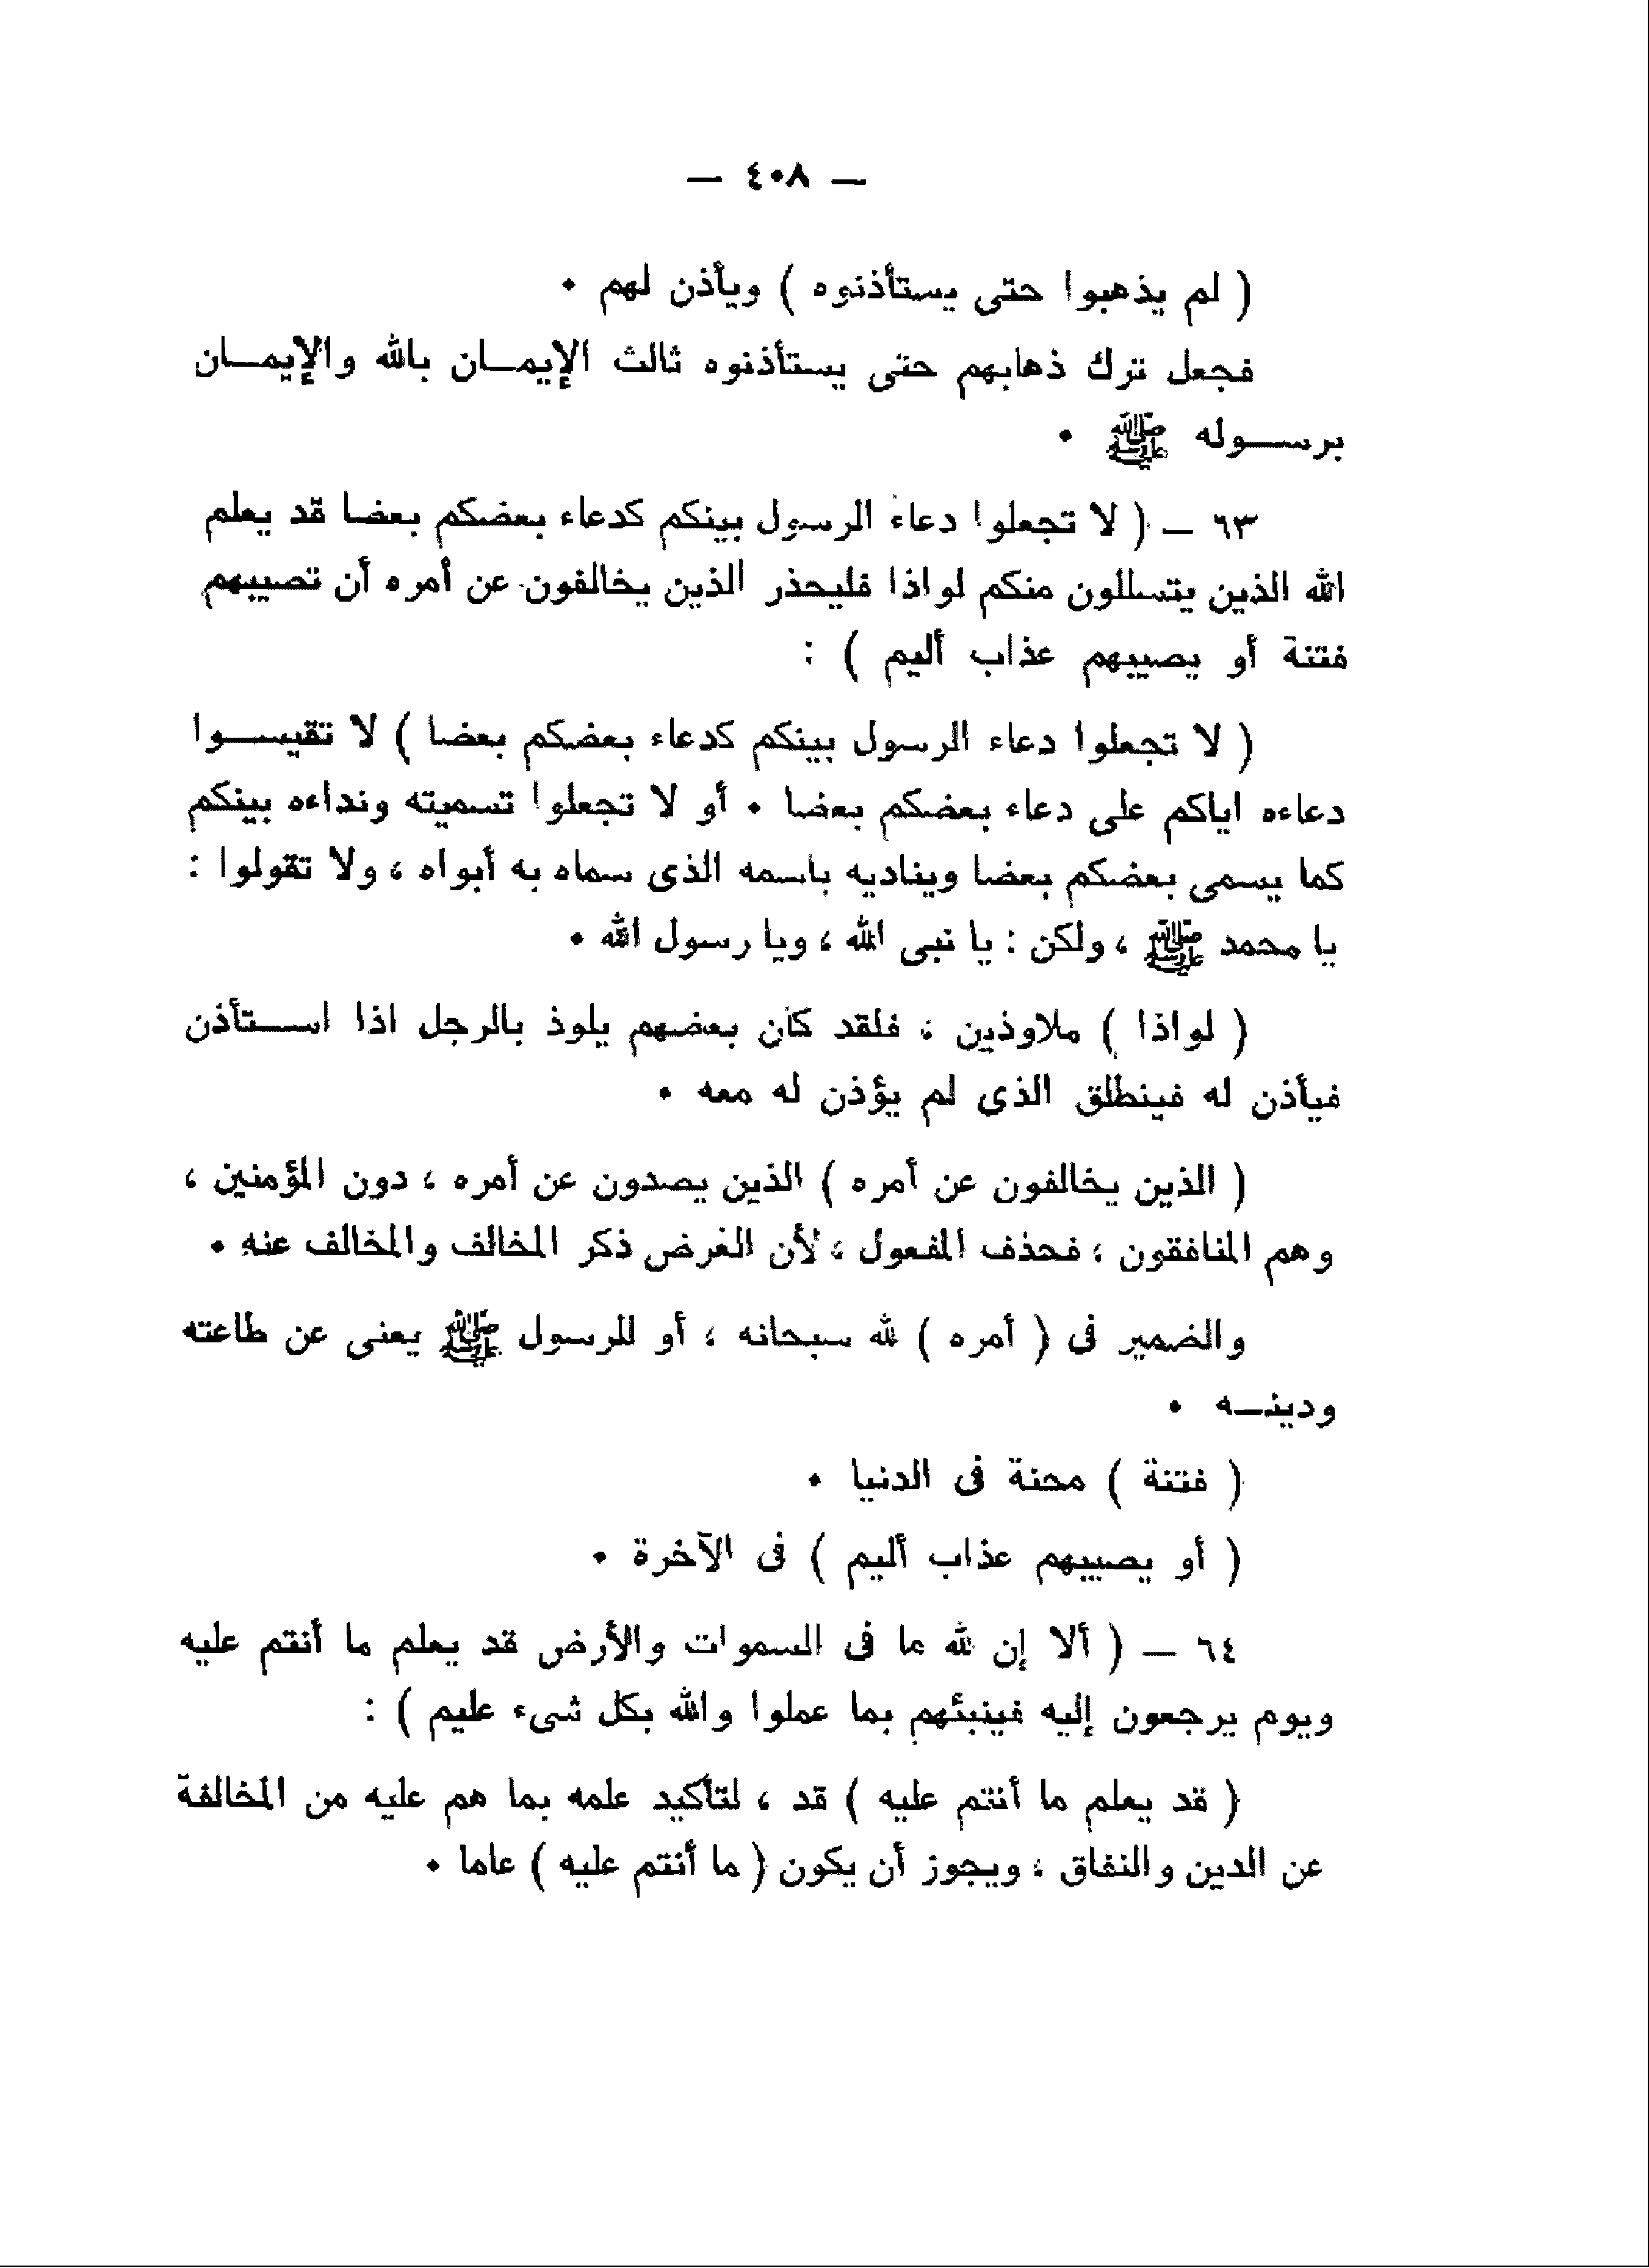 — ٤٠٨ —
( لم يذهبوا حتى يستأذنوه ) ويأذن لهم ٠
فجعل ترك ذهابهم حتى يستأذنوه ثالث الإيمــان بالله والإيمــان
برســـوله ﷺ ٠
٦٣ — ( لا تجعلوا دعاء الرسول بينكم كدعاء بعضكم بعضا قد يعلم
الله الذين يتسللون منكم لواذا فليحذر الذين يخالفون عن أمره أن تصيبهم
فتنة أو يصيبهم عذاب أليم ) :
( لا تجعلوا دعاء الرسول بينكم كدعاء بعضكم بعضا ) لا تقيســـوا
دعاءه اياكم على دعاء بعضكم بعضا ٠ أو لا تجعلوا تسميته ونداءه بينكم
كما يسمى بعضكم بعضا ويناديه باسمه الذى سماه به أبواه ، ولا تقولوا :
يا محمد ﷺ ، ولكن : يا نبى الله ، ويا رسول الله ٠
( لواذا ) ملاوذين ، فلقد كان بعضهم يلوذ بالرجل اذا اســـتأذن
فيأذن له فينطلق الذى لم يؤذن له معه ٠
( الذين يخالفون عن أمره ) الذين يصدون عن أمره ، دون المؤمنين ،
وهم المنافقون ، فحذف المفعول ، لأن الغرض ذكر المخالف والمخالف عنه ٠
والضمير فى ( أمره ) لله سبحانه ، أو للرسول ﷺ يعنى عن طاعته
ودينــه ٠
( فتنة ) محنة فى الدنيا ٠
( أو يصيبهم عذاب أليم ) فى الآخرة ٠
٦٤ — ( ألا إن لله ما فى السموات والأرض قد يعلم ما أنتم عليه
ويوم يرجعون إليه فينبئهم بما عملوا والله بكل شىء عليم ) :
( قد يعلم ما أنتم عليه ) قد ، لتأكيد علمه بما هم عليه من المخالفة
عن الدين والنفاق ، ويجوز أن يكون ( ما أنتم عليه ) عاما ٠